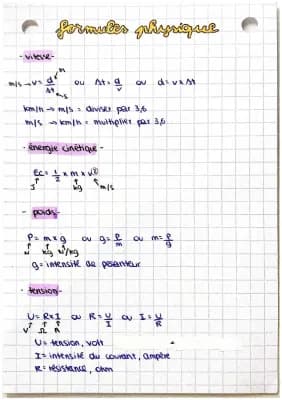 formules physique
- vitesse -
m/s → v = d/Δt ou Δt = d/v ou d = v x Δt
m
s
km/h → m/s = diviser par 3,6
m/s → km/h = multiplier par 3,6
- énergie cinétique -
Ec = 1/2 x m x v²
J kg m/s
- poids -
P = m x g ou g = P/m ou m = P/g
N kg N/kg
g = intensité de pesanteur
- tension -
U = R x I ou R = U/I ou I = U/R
V Ω A
U = tension, volt
I = intensité du courant, ampère
R = résistance, ohm